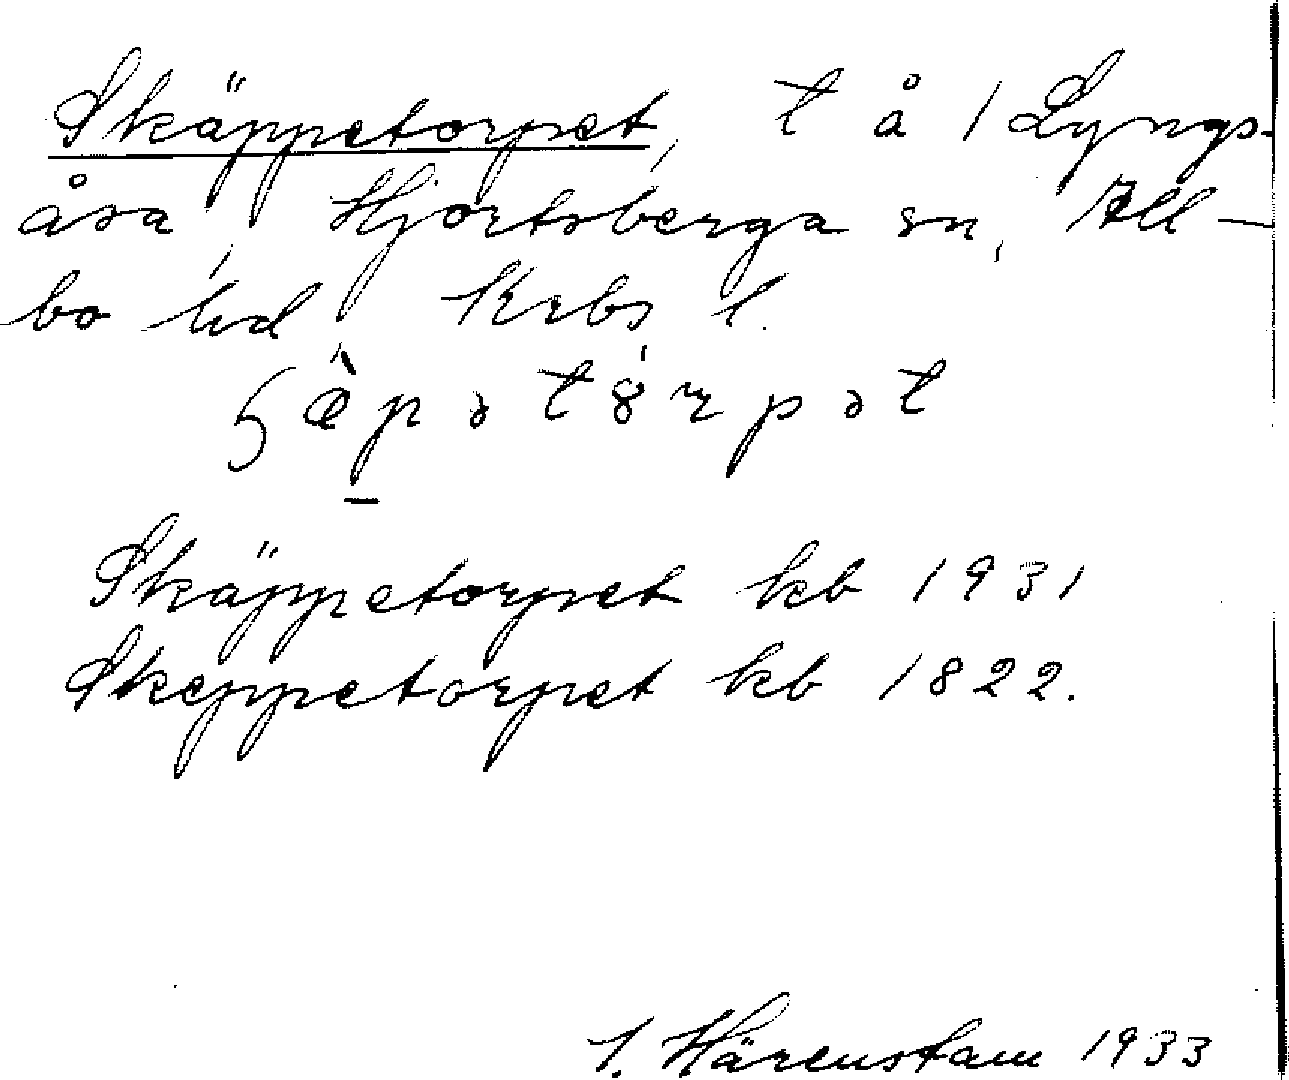 Skäppetorpet, t å 1 Lyngs-
åsa, Hjortsberga sn, All-
bo hd, Krbs l.
ʂæ̀pətȣ́rpət
Skäppetorpet kb 1931
Skeppetorpet kb 1822.
I. Härenstam 1933